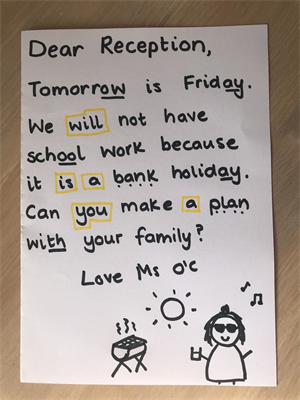 Dear Reception,
Tomorrow is Friday.
We will not have
school work because
it is a bank holiday.
Can you make a plan
with your family?
Love Ms O'C